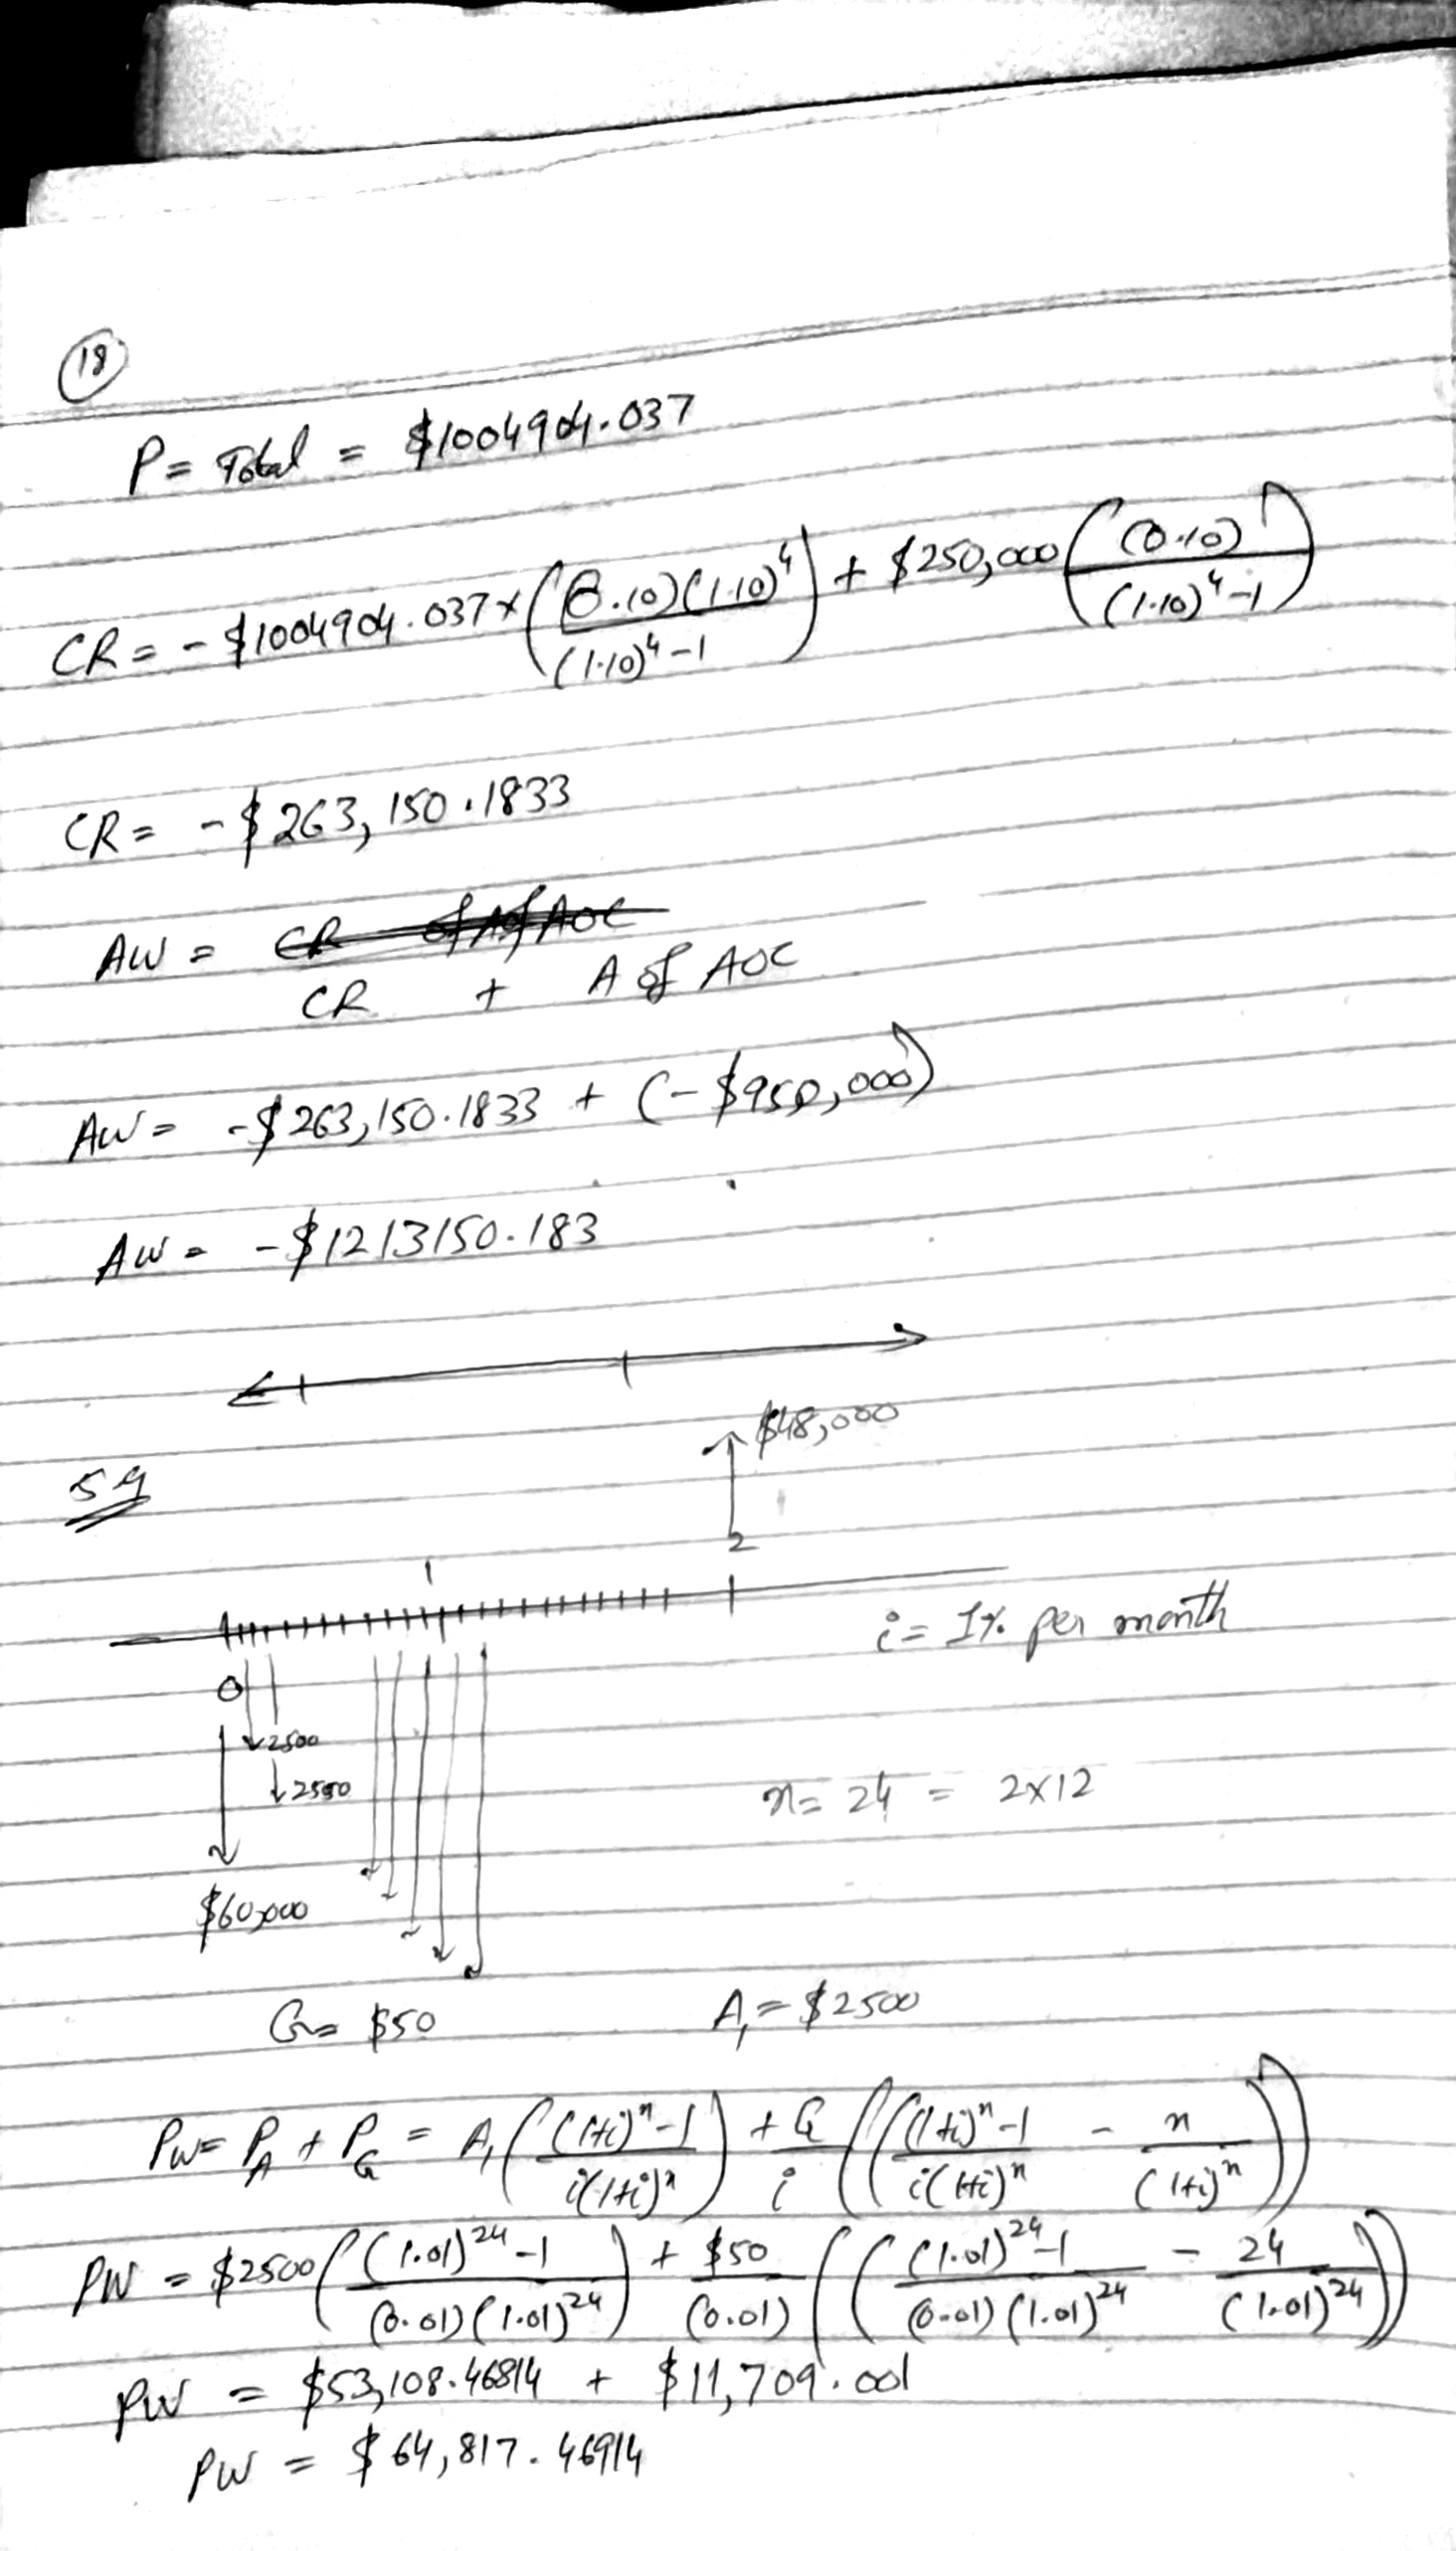 18
P = Total = $1004904.037
CR = - $1004904.037 x ( (0.10)(1.10)^4 / (1.10)^4 - 1 ) + $250,000 ( (0.10) / (1.10)^4 - 1 )
CR = - $263,150.1833
AW = CR of A of AOC
CR + A of AOC
AW = - $263,150.1833 + (- $950,000)
AW = - $1213150.183
$48,000
2
1
i = 1% per month
0
2500
2550
n = 24 = 2x12
$60,000
G = $50 A₁ = $2500
PW = P_A + P_G = A₁ ( (1+i)^n - 1 / i(1+i)^n ) + G / i ( ( (1+i)^n - 1 / i(1+i)^n - n / (1+i)^n ) )
PW = $2500 ( (1.01)^24 - 1 / (0.01)(1.01)^24 ) + $50 / (0.01) ( ( (1.01)^24 - 1 / (0.01)(1.01)^24 - 24 / (1.01)^24 ) )
PW = $53,108.46814 + $11,709.001
PW = $64,817.46914